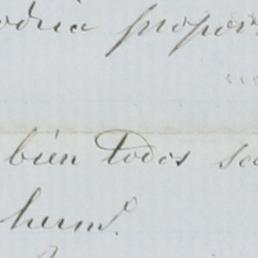 odria propor
bien todos se
herms.